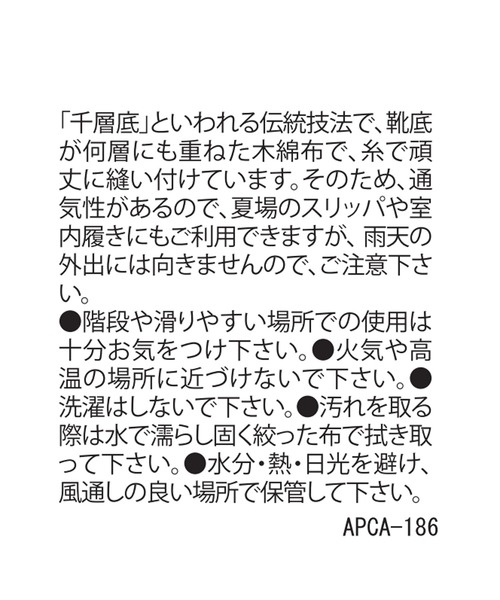 「千層底」といわれる伝統技法で、靴底
が何層にも重ねた木綿布で、糸で頑
丈に縫い付けています。そのため、通
気性があるので、夏場のスリッパや室
内履きにもご利用できますが、雨天の
外出には向きませんので、ご注意下さ
い。
●階段や滑りやすい場所での使用は
十分お気をつけ下さい。●火気や高
温の場所に近づけないで下さい。●
洗濯はしないで下さい。●汚れを取る
際は水で濡らし固く絞った布で拭き取
って下さい。●水分・熱・日光を避け、
風通しの良い場所で保管して下さい。
APCA-186